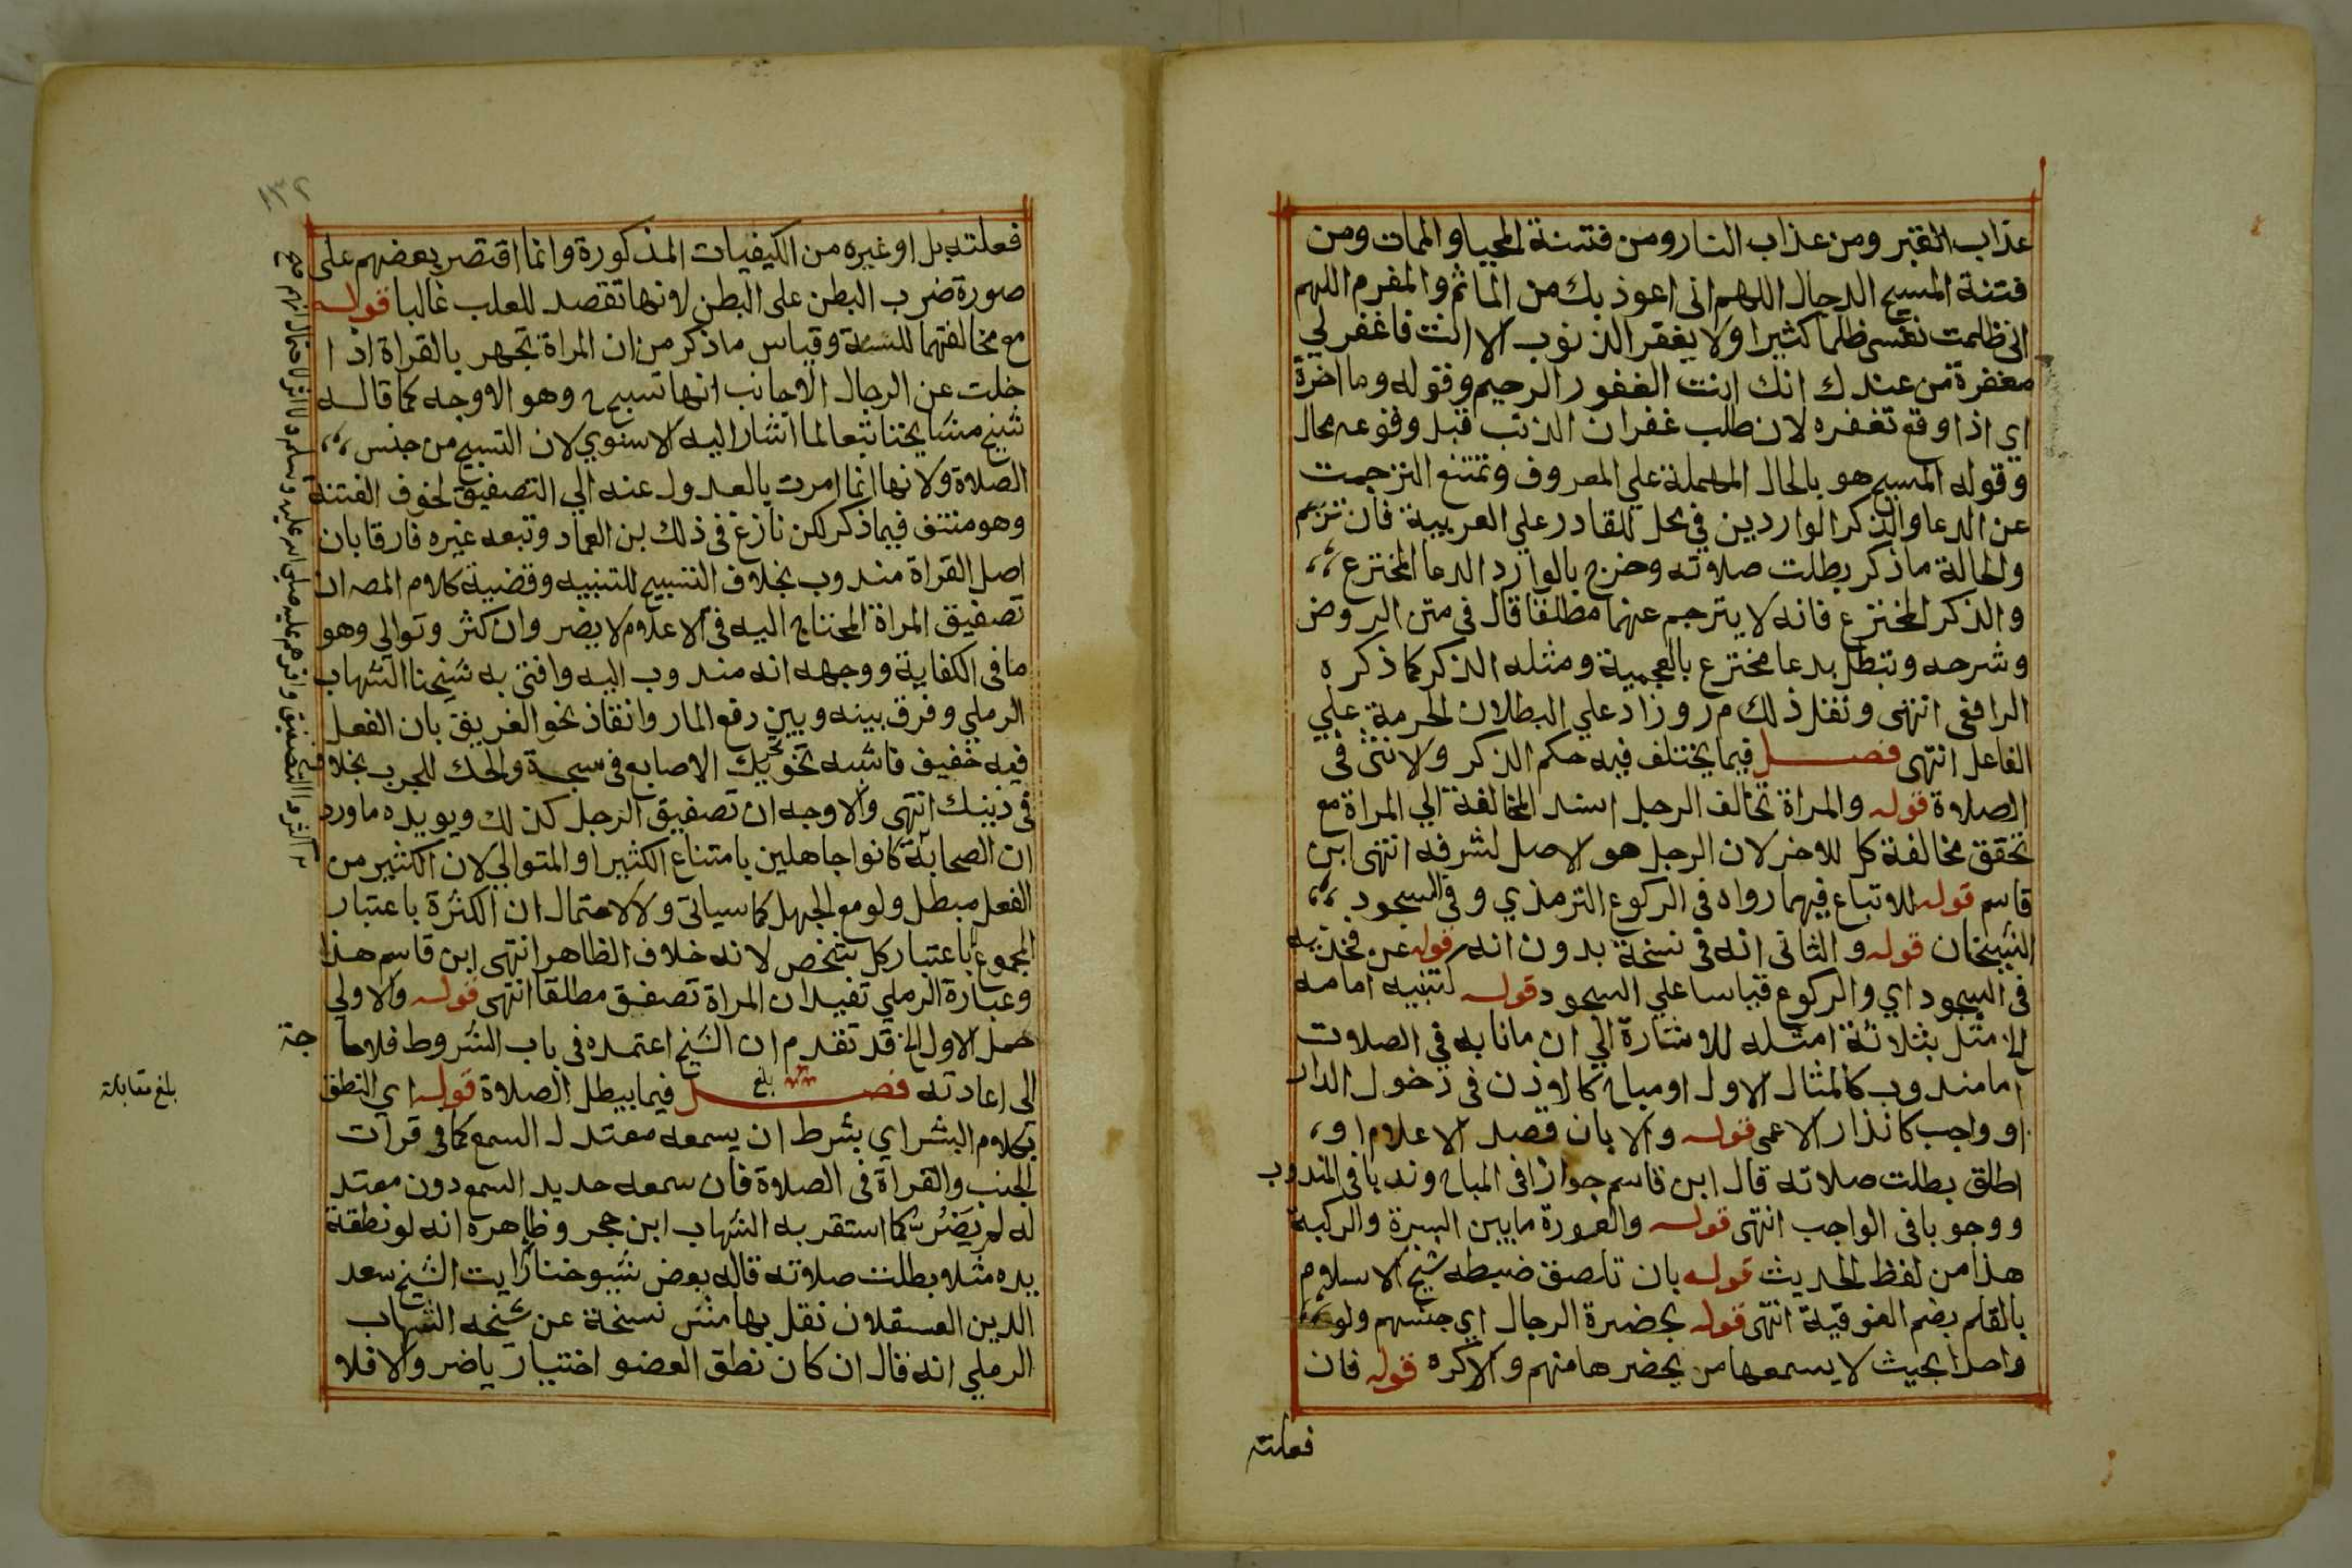 عذاب القبر ومن عذاب النار ومن فتنة المحيا والممات ومن
فتنة المسيح الدجال اللهم اني اعوذ بك من الماثم والمغرم اللهم
اني ظلمت نفسي ظلما كثيرا ولا يغفر الذنوب الا انت فاغفر لي
مغفرة من عندك انك انت الغفور الرحيم وقوله وما اخرة
اي اذا وقع تغفره لان طلب غفران الذنب قبل وقوعه محال
وقوله المسيح هو بالحال المهملة علي المعروف وتمتنع الترجمت
عن الدعا والذكر الواردين في محل للقادر علي العربية فان ترجم
والحالة ما ذكر بطلت صلاته وخرج بالوارد الدعا المخترع
والذكر المخترع فانه لا يترجم عنهما مطلقا قال في متن الروض
وشرحه وتبطل بدعا مخترع بالعجمية ومثله الذكر كما ذكره
الرافعي انتهى ونقل ذلك م ر وزاد علي البطلان الحرمة علي
الفاعل انتهى فصل فيما يختلف فيه حكم الذكر ولانثى في
الصلاة قوله والمراة تخالف الرجل اسند المخالفة الي المراة مع
تحقق مخالفة كل للاخر لان الرجل هو الاصل لشرفه انتهى ابن
قاسم قوله للاتباع فيهما رواه في الركوع الترمذي وفي السجود
الشيخان قوله والثاني انه في نسخة بدون انه قوله عن فخذيه
في السجود اي والركوع قياسا علي السجود قوله لتنبيه امامه
الخ مثل بثلاثة امثله للاشارة الي ان ما نابه في الصلات
اما مندوب كالمثال الاول او مباح كالاذن في دخول الدار
او واجب كانذار الاعمى قوله والا بان قصد الاعلام او
اطلق بطلت صلاته قال ابن قاسم جوازا في المباح وندبا في المندوب
ووجوبا في الواجب انتهى قوله والعورة ما بين السرة والركبة
هذا من لفظ الحديث قوله بان تلصق ضبطه شيخ الاسلام
بالقلم بضم الفوقية انتهى قوله بحضرة الرجال اي جنسهم ولو
واحدا بحيث لا يسمعها من يحضرها منهم والا كره قوله فان
فعلته
١٣٢
فعلته بل او غيره من الكيفيات المذكورة وانما اقتصر بعضهم على
صورة ضرب البطن على البطن لانها تقصد للعلب غالبا قوله
مع مخالفتهما للسنة وقياس ما ذكر من ان المراة تجهر بالقراة اذا
خلت عن الرجال الاجانب انها تسبيح وهو الاوجه كما قاله
شيخ مشايخنا تبعا لما اشار اليه الاسنوي لان التسبيح من جنس
الصلاة ولانها انما امرت بالعدول عنه الي التصفيق لخوف الفتنة
وهو منتف فيما ذكر لكن نازع في ذلك بن العماد وتبعه غيره فارقا بان
اصل القراة مندوب بخلاف التسبيح للتنبيه وقضية كلام المصه ان
تصفيق المراة المحتاج اليه في الاعلام لا يضر وان كثر وتوالي وهو
ما في الكفاية ووجهه انه مندوب اليه وافتى به شيخنا الشهاب
الرملي وفرق بينه وبين دفع المار وانقاذ نحو الغريق بان الفعل
فيه خفيف فاشبه تحريك الاصابع في سبحة والحك للجرب بخلافه
في ذينك انتهى والاوجه ان تصفيق الرجل كذلك ويويده ما ورد
ان الصحابة كانوا جاهلين بامتناع الكثير او المتوالي لان الكثير من
الفعل مبطل ولو مع الجهل كما سياتي ولا لاحتمال ان الكثرة باعتبار
المجموع باعتبار كل شخص لانه خلاف الظاهر انتهى ابن قاسم هذا
وعبارة الرملي تفيد ان المراة تصفق مطلقا انتهى قوله والاولي
حمل الاول الخ قد تقدم ان الشيخ اعتمده في باب الشروط فلا حاجة
الى اعادته فصل فيما يبطل الصلاة قوله اي النطق
بكلام البشر اي بشرط ان يسمعه معتدل السمع كما في قرات
الجنب والقراة في الصلاة فان سمعه حديد السمع دون معتد
له لم يضر كما استقر به الشهاب ابن حجر وظاهره انه لو نطقة
يده مثلا بطلت صلاته قاله بعض شيوخنا رايت الشيخ سعد
الدين العسقلان نقل بهامش نسخة عن شيخه الشهاب
الرملي انه قال ان كان نطق العضو اختيار ياضر والا فلا
بلغ
بلغ مقابلة